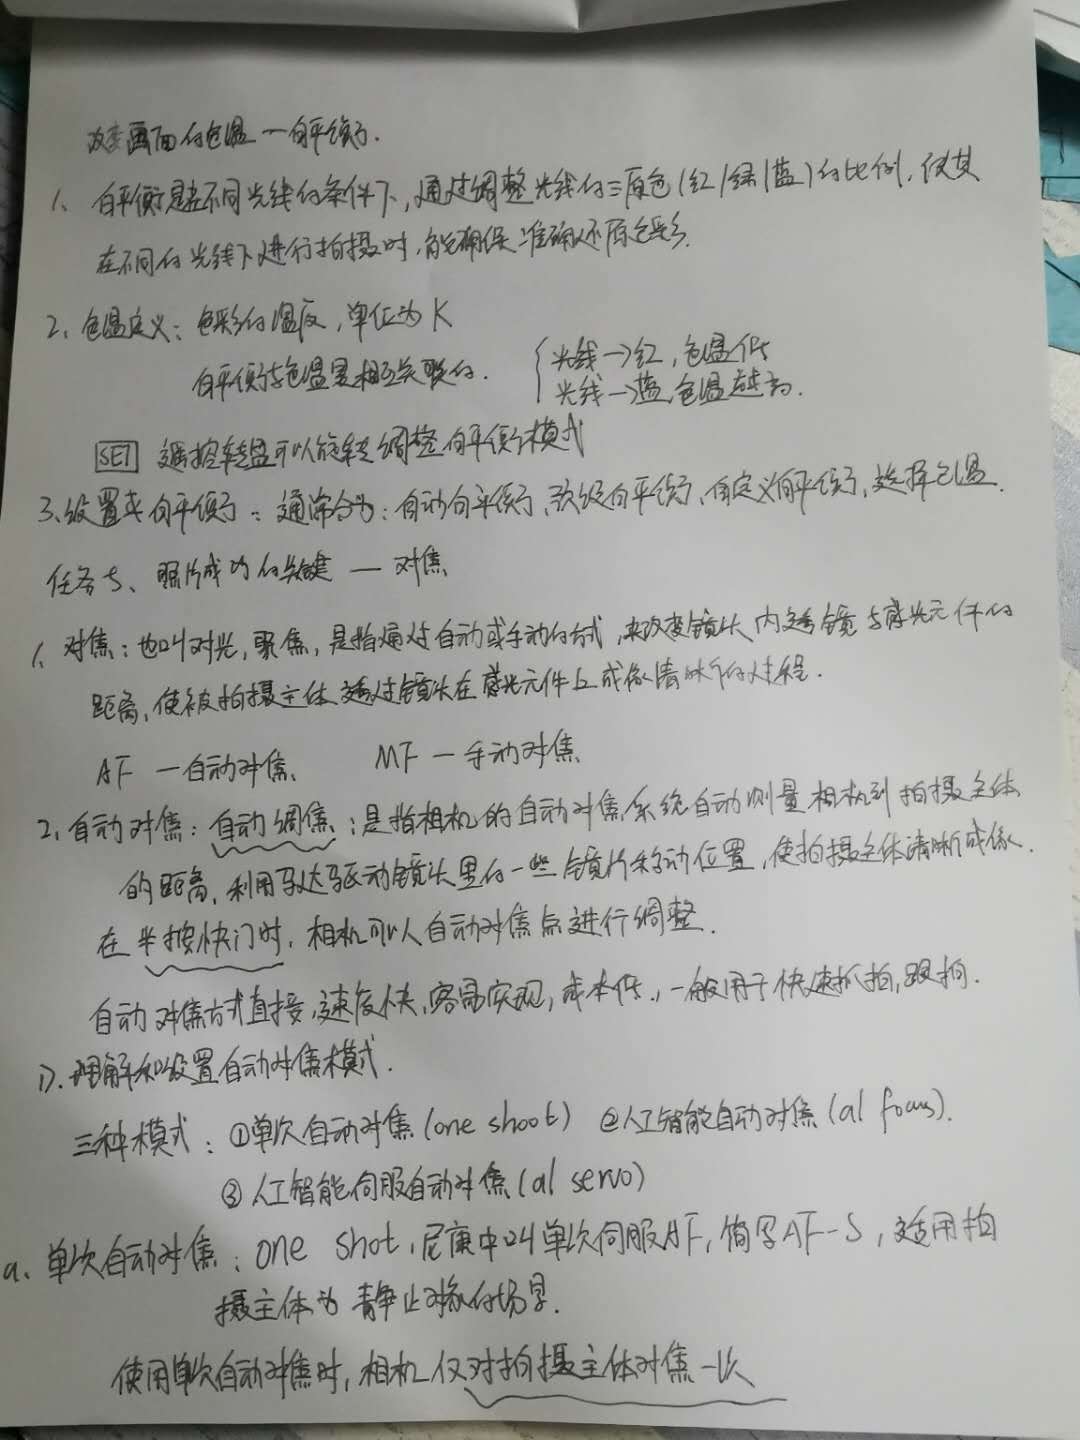 改变画面的色温一白平衡.
1、白平衡是在不同光线的条件下,通过调整光线的三原色(红/绿/蓝)的比例,使其
在不同的光线下进行拍摄时,能确保准确还原色彩.
2、色温定义:色彩的温度,单位为K
白平衡与色温是相互关联的.
光线→红,色温低
光线→蓝,色温越高.
SET 遥控转盘可以旋转调整白平衡模式
3、设置 白平衡:通常分为:自动白平衡,预设白平衡,自定义白平衡,选择色温.
任务5、照片成功的关键—对焦
1、对焦:也叫对光,聚焦,是指通过自动或手动的方式,来改变镜头内透镜与感光元件的
距离,使被拍摄主体透过镜头在感光元件上成像清晰的过程.
AF—自动对焦 MF—手动对焦
2、自动对焦:自动调焦:是指相机的自动对焦系统自动测量相机到拍摄主体
的距离,利用马达驱动镜头里的一些镜片移动位置,使拍摄主体清晰成像.
在半按快门时,相机可以自动对焦点进行调整.
自动对焦方式直接,速度快,容易实现,成本低,一般用于快速抓拍,跟拍.
1).理解和设置自动对焦模式.
三种模式:①单次自动对焦(one shoot) ②人工智能自动对焦(al focus).
③人工智能伺服自动对焦(al servo)
a、单次自动对焦:one shot,尼康中叫单次伺服AF,简写AF-S,适用拍
摄主体为静止对象的场景.
使用单次自动对焦时,相机仅对拍摄主体对焦一次